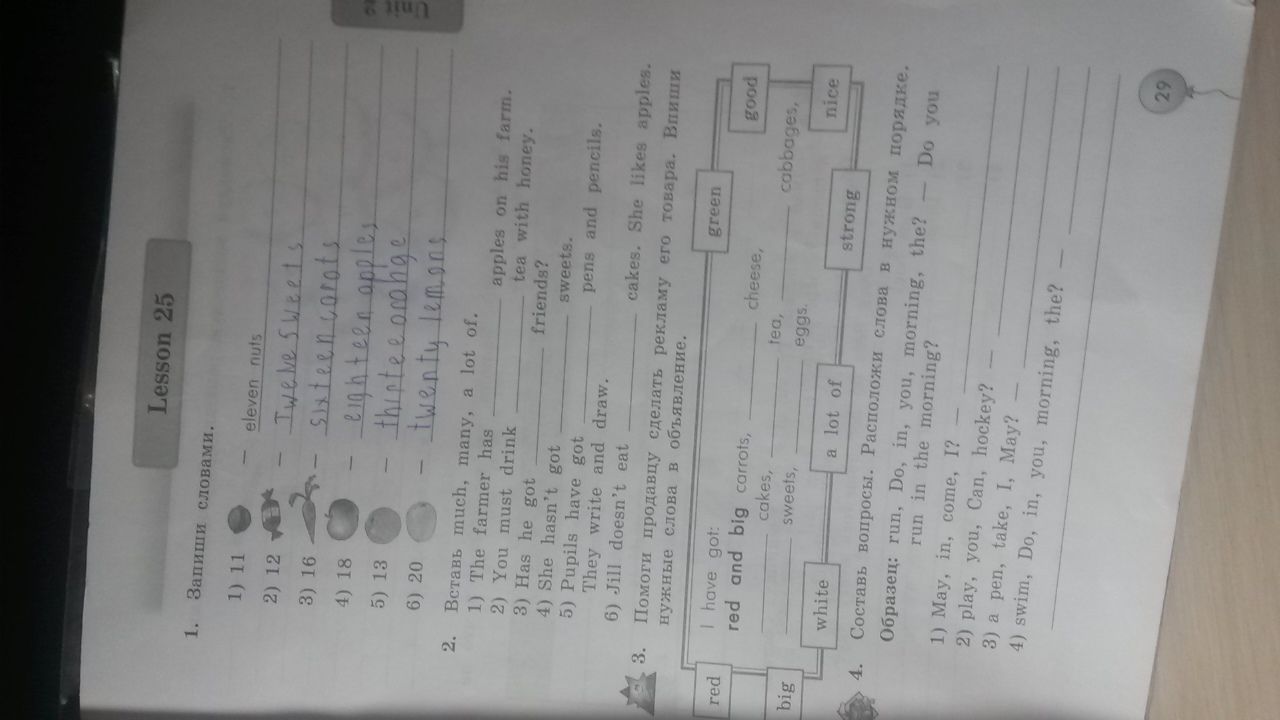 Unit
Lesson 25
1. Запиши словами.
1) 11 — eleven nuts
2) 12 — Twelve sweets
3) 16 — sixteen carrots
4) 18 — eighteen apples
5) 13 — thirteee orange
6) 20 — twenty lemons
2. Вставь much, many, a lot of.
1) The farmer has ______ apples on his farm.
2) You must drink ______ tea with honey.
3) Has he got ______ friends?
4) She hasn't got ______ sweets.
5) Pupils have got ______ pens and pencils.
They write and draw.
6) Jill doesn't eat ______ cakes. She likes apples.
3. Помоги продавцу сделать рекламу его товара. Впиши
нужные слова в объявление.
red
green
good
I have got:
red and big carrots, ______ cheese,
______ cakes, ______ tea, ______ cabbages,
______ sweets, ______ eggs.
big
white
a lot of
strong
nice
4. Составь вопросы. Расположи слова в нужном порядке.
Образец: run, Do, in, you, morning, the? — Do you
run in the morning?
1) May, in, come, I? —
2) play, you, Can, hockey? —
3) a pen, take, I, May? —
4) swim, Do, in, you, morning, the? —
29